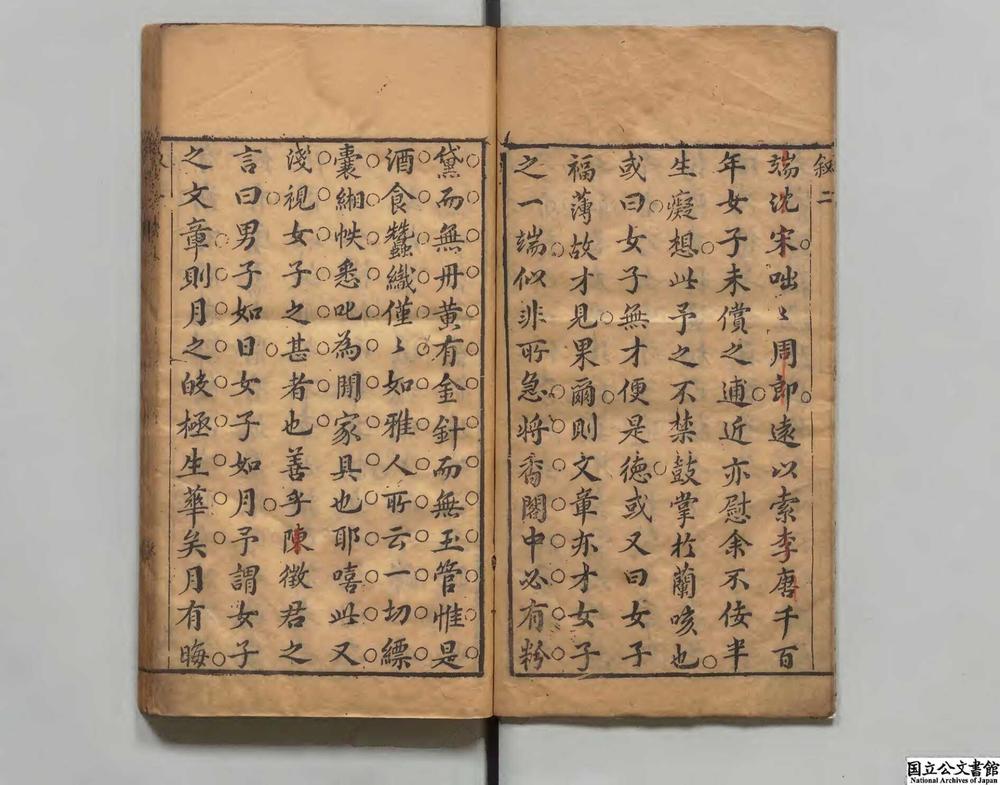 叙二
端沈宋咄〻周郎遠以索李唐千百
年女子未償之逋近亦慰余不佞半
生癡想此予之不禁鼓掌於蘭咳也
或曰女子無才便是徳或又曰女子
福薄故才見果爾則文章亦才女子
之一端似非所急将香閣中必有粉
黛而無丹黄有金針而無玉管惟是
酒食蠶織僅〻如雅人所云一切縹
囊緗帙悉叱為閒家具也耶嘻此又
淺視女子之甚者也善乎陳徵君之
言曰男子如日女子如月予謂女子
之文章則月之皎極生華矣月有晦
国立公文書館
National Archives of Japan